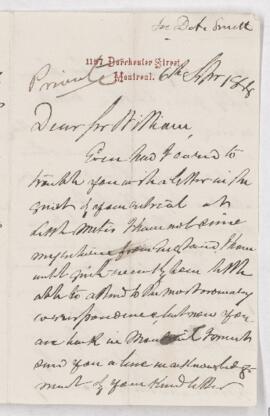 Sir D. A. Smith
1157 Dorchester Street,
Montreal.
Private
6th Sepr 18
Dear Sir William,
Even had I cared to
trouble you with a letter in the
quiet of your retreat at
Little Metis I have not since
my return from England I have
until quite recently been little
able to attend to the most ordinary
correspondence, but now you
are back in Montreal I must
send you a line in acknowledg-
ment of your kind letter